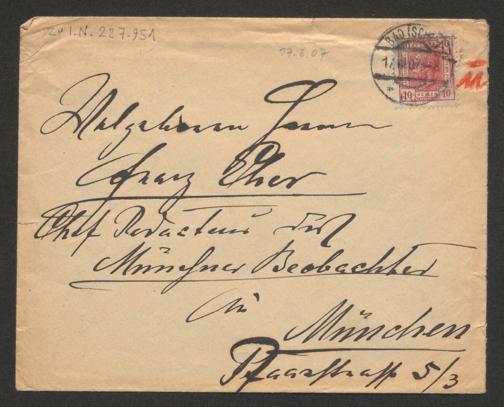 Zu I.N. 227.951
17.8.07
BAD
10 10
Wolgeboren Herrn
Franz Eher
Chef Redacteur des
Münchner Beobachter
in
München
Pfarrstrasse 5/3